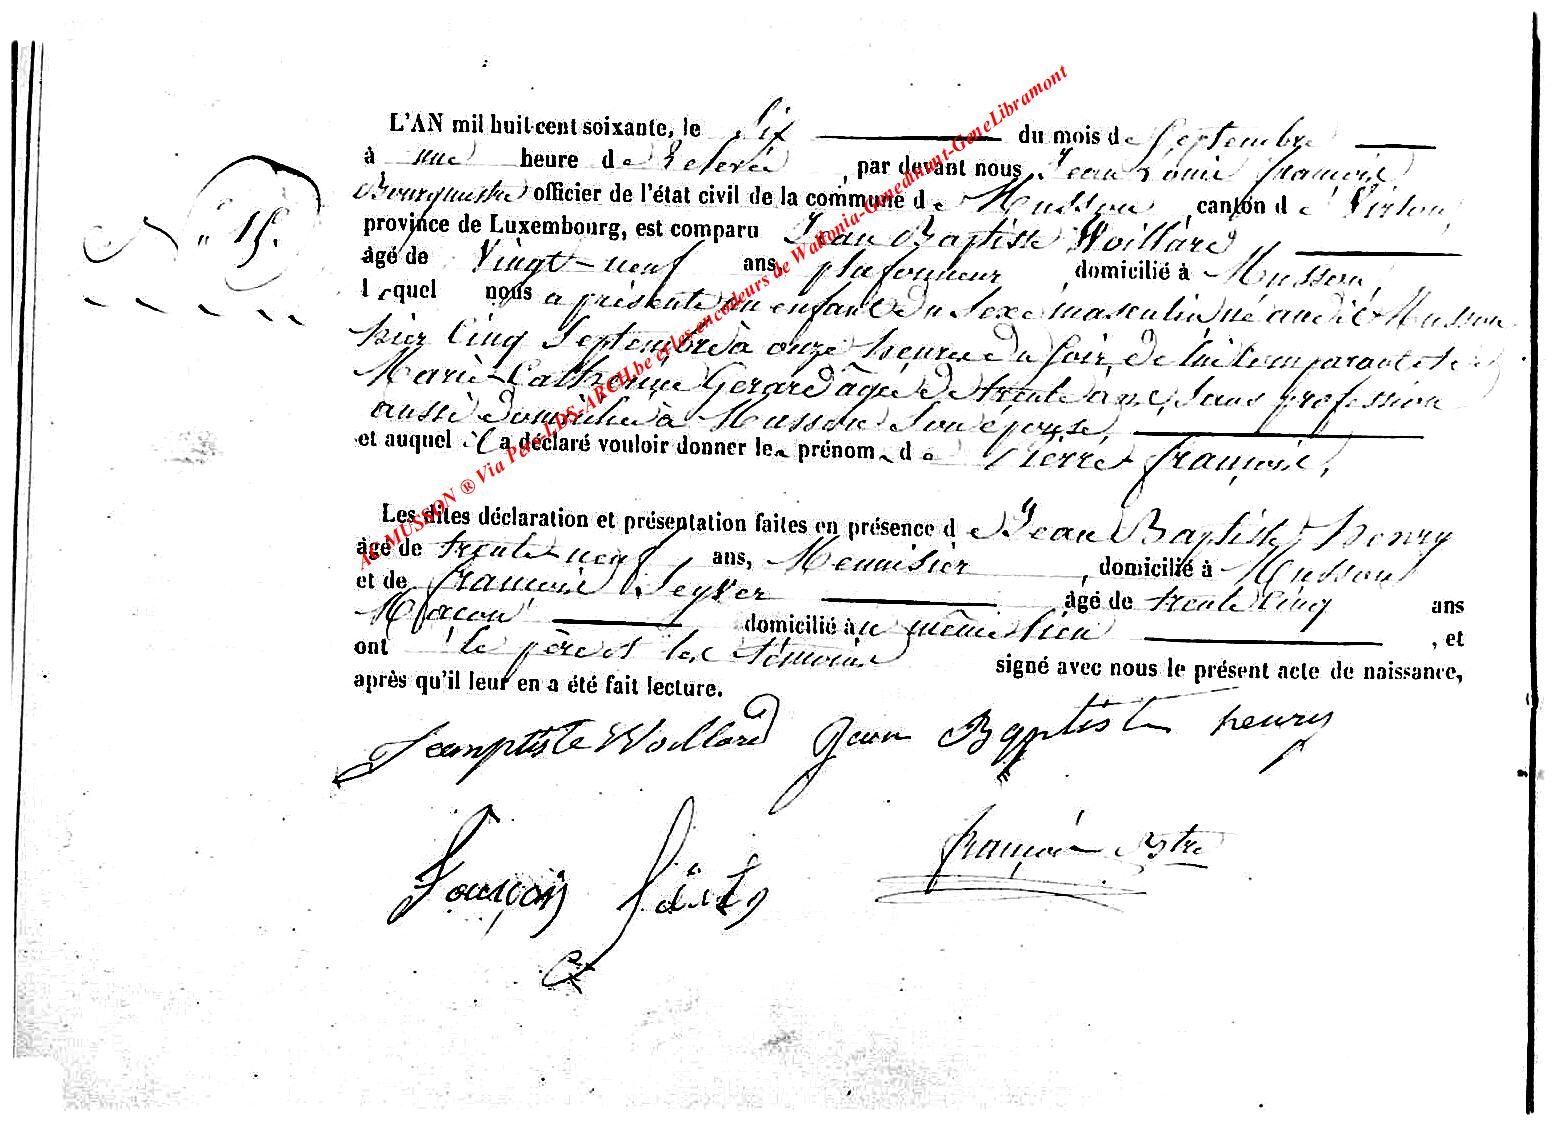 L'AN mil huit cent soixante, le Six du mois de Septembre
à une heure de relevée, par devant nous Jean Louis françois
Bourgmestre officier de l'état civil de la commune de Musson, canton de Virton,
N° 15.
province de Luxembourg, est comparu Jean Baptiste Woillard
âgé de Vingt-neuf ans, plafonneur, domicilié à Musson,
lequel nous a présenté un enfant du Sexe masculin né audit Musson
hier Cinq Septembre à onze heures du Soir, de lui Comparant et de
Marie-Catherine Gerard âgée de trente ans, Sans profession
aussi domiciliée à Musson Son épouse,
et auquel il a déclaré vouloir donner les prénoms de Pierre françois,
Les dites déclaration et présentation faites en présence de Jean Baptiste henry
âgé de trente-neuf ans, Menuisier, domicilié à Musson
et de françois âgé de trente Cinq ans
Maçon domicilié au même lieu, et
ont le père et les témoins signé avec nous le présent acte de naissance,
après qu'il leur en a été fait lecture.
Jeanptiste Woillard Jean Baptiste henry
françois
AC MUSSON ® Via Père-LDS-ARCH.be et les encodeurs de Wallonia-Genedinant-GeneLibramont